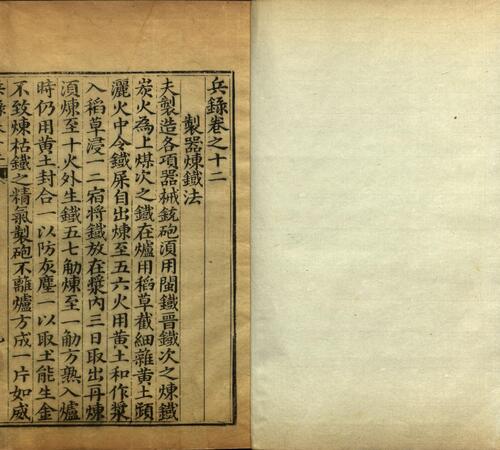 兵錄卷之十二
製器煉鐵法
夫製造各項器械銃砲湏用閩鐵晋鐵次之煉鐵
炭火為上煤次之鐵在爐用稻草截細雜黃土頻
灑火中令鐵屎自出煉至五六火用黃土和作漿
入稻草浸一二宿將鐵放在漿內三日取出再煉
湏煉至十火外生鐵五七觔煉至一觔方熟入爐
時仍用黃土封合一以防灰塵一以取土能生金
不致煉枯鐵之精氣製砲不離爐方成一片如威
兵錄